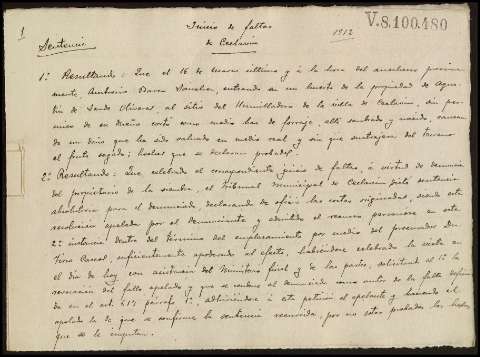 1
Juicio de faltas
1912
V.8.100.480
Sentencia
de Ceclavin
1º Resultando: Que el 16 de Marzo último y á la hora del anochecer proxima-
mente, Ambrosio Barra Sanchez, entrando en un huerto de la propiedad de Agus-
tín de Sande Olivares al sitio del Humilladero de la villa de Ceclavin, sin per-
miso de su dueño cortó una media haz de forraje, allí sembrado y nacido, causan-
do un daño que ha sido valuado en medio real y sin que sustrajera del terreno
el fruto segado; hechos que se declaran probados.
2º Resultando: Que celebrado el correspondiente juicio de faltas, á virtud de denuncia
del propietario de la siembra, el Tribunal Municipal de Ceclavin dictó sentencia
absolutoria para el denunciado, declarando de oficio las costas originadas, siendo esta
resolución apelada por el denunciante y admitido el recurso personose en esta
2ª instancia dentro del término del emplazamiento por medio del procurador Dn
Asensal, suficientemente apoderado al efecto, habiéndose celebrado la vista en
el día de hoy con asistencia del Ministerio fiscal y de las partes, solicitando el 1º la
revocación del fallo apelado y que se condene al denunciado como autor de la falta defini-
da en el art. párrafo 1º, adhiriéndose á esta petición el apelante y haciendo el
apelado la de que se confirme la sentencia recurrida, por no estar probados los hechos
que se le imputan.